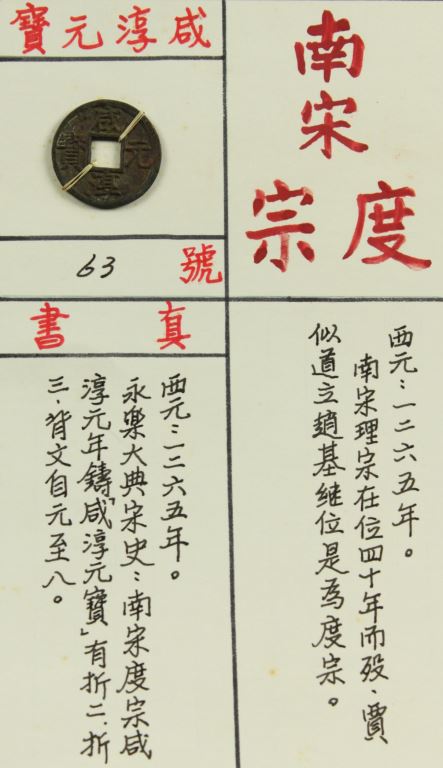 南宋
度宗
西元：一二六五年。
南宋理宗在位四十年而殁、賈
似道立趙基继位是為度宗。
咸淳元寶
咸淳元寶
號 63
真書
西元：一二六五年。
永樂大典宋史：南宋度宗咸
淳元年鑄「咸淳元寶」有折二、折
三、背文自元至八。